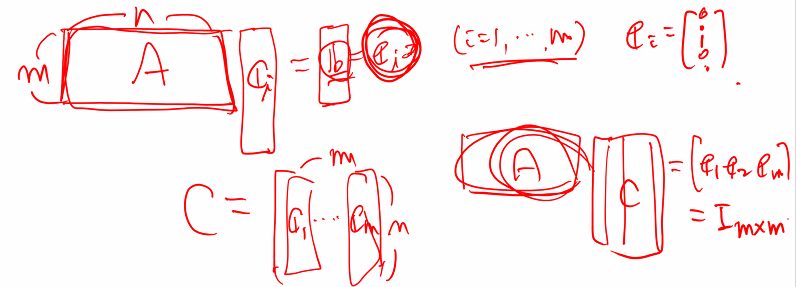 n
m A c_i = b = e_i (i=1, ..., m) e_i = (0 1 0 .)
C = [c_1 ... c_m] m n
A C = [e_1 e_2 e_m]
= I_{m×m}